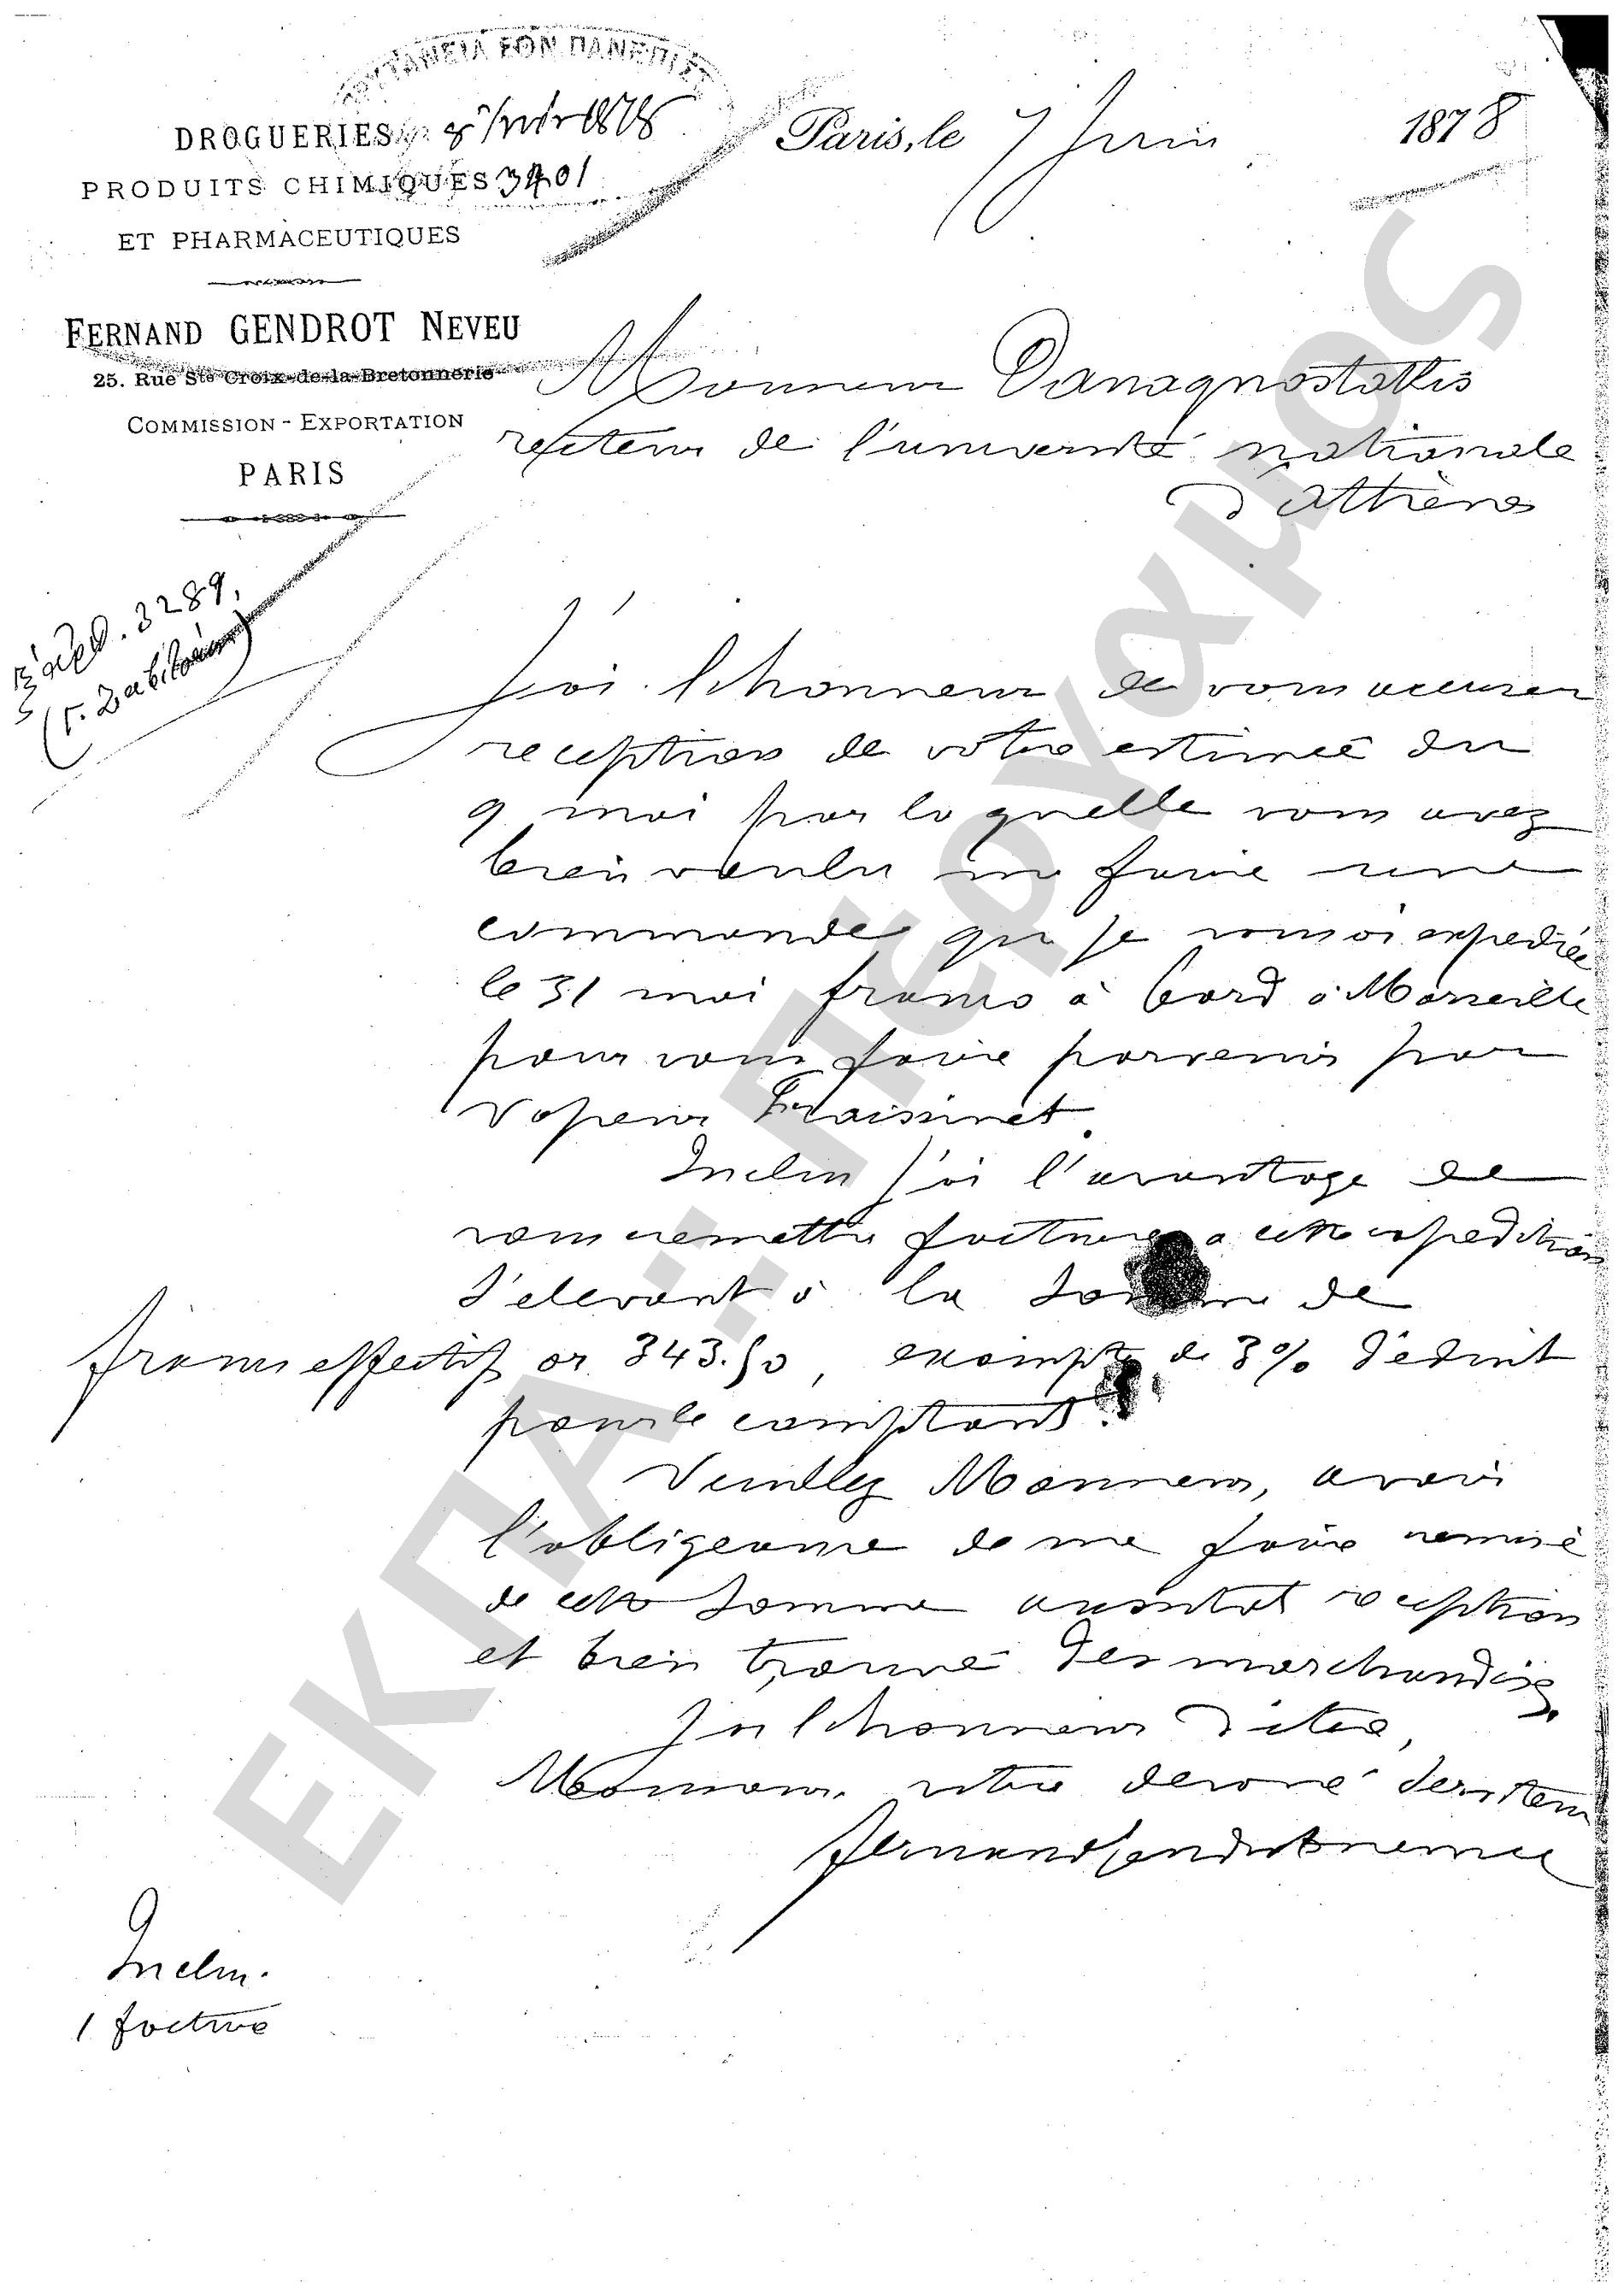 ΠΡΥΤΑΝΕΙΑ ΤΟΝ ΠΑΝΕΠΙΣΤ
DROGUERIES
PRODUITS CHIMIQUES 3401
ET PHARMACEUTIQUES
FERNAND GENDROT NEVEU
25. Rue Ste Croix-de-la-Bretonnerie
COMMISSION - EXPORTATION
PARIS
Paris, le 7 Juin 1878
Monsieur Panagnostakis
recteur de l'université nationale
d'athènes
3289.
J'ai l'honneur de vous accuser
reception de votre estimée du
9 mai par laquelle vous avez
bien voulu me faire une
commande que je vous ai expediée
le 31 mai franco à bord à Marseille
pour vous faire parvenir par
vapeur Fraissinet.
Inclus j'ai l'avantage de
vous remettre facture a cette expedition
s'elevant à la somme de
francs effectif or 343.50, escompte de 3% déduit
pour le comptant.
Veuillez Monsieur, avoir
l'obligeance de me faire remise
de cette somme aussitot reception
et bien trouvé des marchandises.
J'ai l'honneur d'etre,
Monsieur, votre devoué serviteur
Fernand Gendrot neveu
Inclus.
1 facture
ΕΚΠΑ.: Πέργαμος